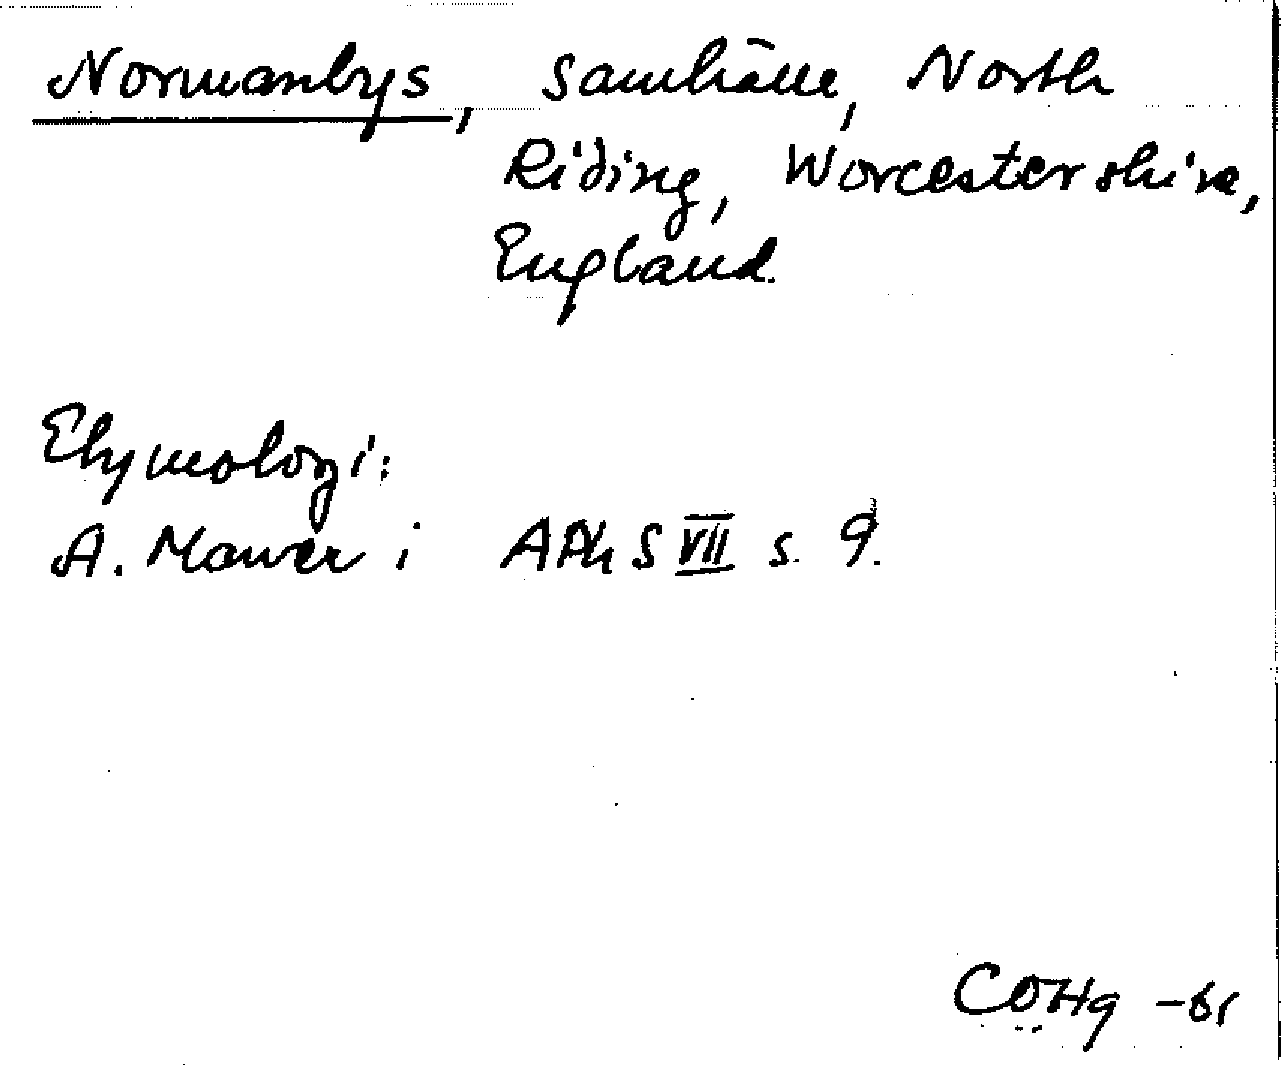 Normanbys, samhälle, North
Riding, Worcestershire,
England.
Etymologi:
A. Mawer i APhS VII s. 9.
COHg -61